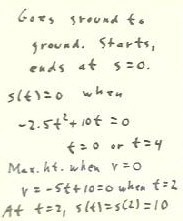 Goes ground to
ground. Starts,
ends at s=0.
s(t)=0 when
-2.5t²+10t=0
t=0 or t=4
Max. ht. when v=0
v=-5t+10=0 when t=2
At t=2, s(t)=s(2)=10